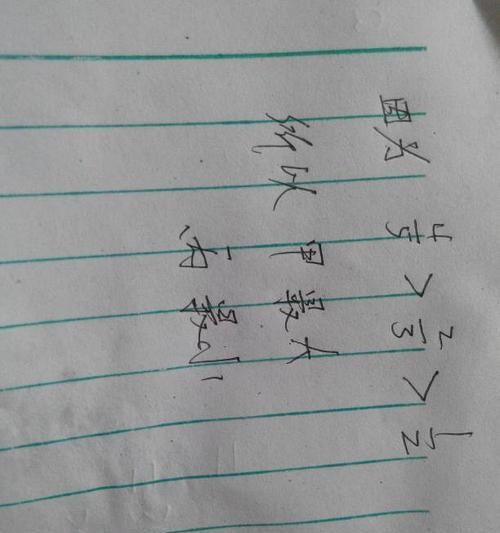 因为 4/5 > 2/3 > 1/2
所以 甲最大
丙最小